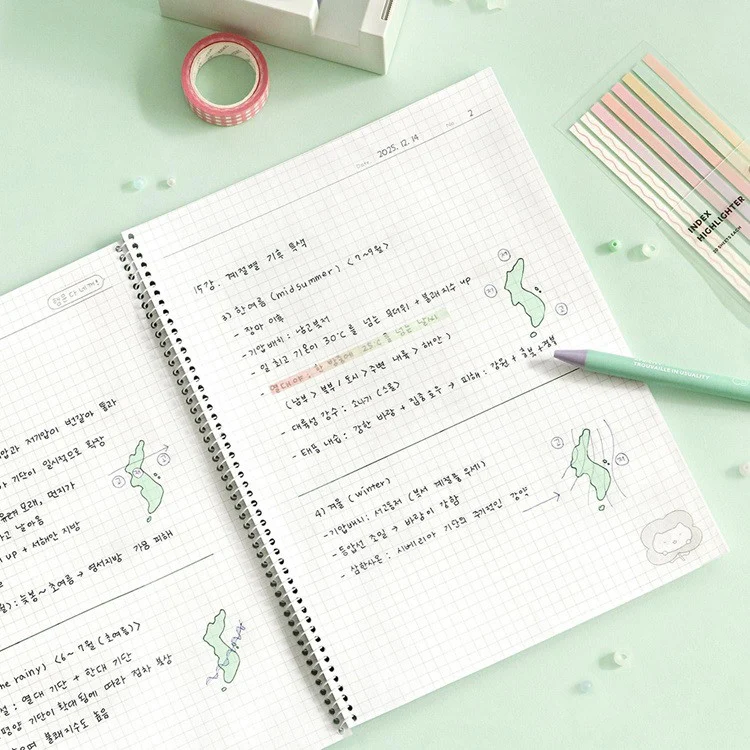 2025. 12. 14
No. 2
15강. 계절별 기후 특색
3) 한여름 (midsummer) <7~9월>
- 장마 이후
- 기압배치 : 남고북저
- 일 최고 기온이 30℃를 넘는 무더위 + 불쾌지수 up
- 열대야 : 한 밤중에 25℃를 넘는 날씨
(남부 > 북부 / 도시 > 주변 내륙 > 해안)
- 대류성 강수 : 소나기 (스콜)
- 태풍 내습 : 강한 바람 + 집중 호우 → 피해 : 강원 + 호남 + 경북
저
저
고
고
4) 겨울 (winter)
- 기압배치 : 서고동저 (북서 계절풍 우세)
- 등압선 조밀 → 바람이 강함
- 삼한사온 : 시베리아 기단의 주기적인 강약
고
저
압과 저기압이 번갈아 통과
기단이 일시적으로 확장
모래, 먼지가
고 날아옴
up + 서해안 지방
월) : 늦봄~초여름 → 영서지방 가뭄 피해
고
저
he rainy) <6~7월 (초여름)>
절 : 열대 기단 + 한대 기단
평양 기단이 확대됨에 따라 점차 북상
으며 불쾌지수도 높음
INDEX
HIGHLIGHTER
20 SHEETS EACH
TROUVAILLE IN USUALITY